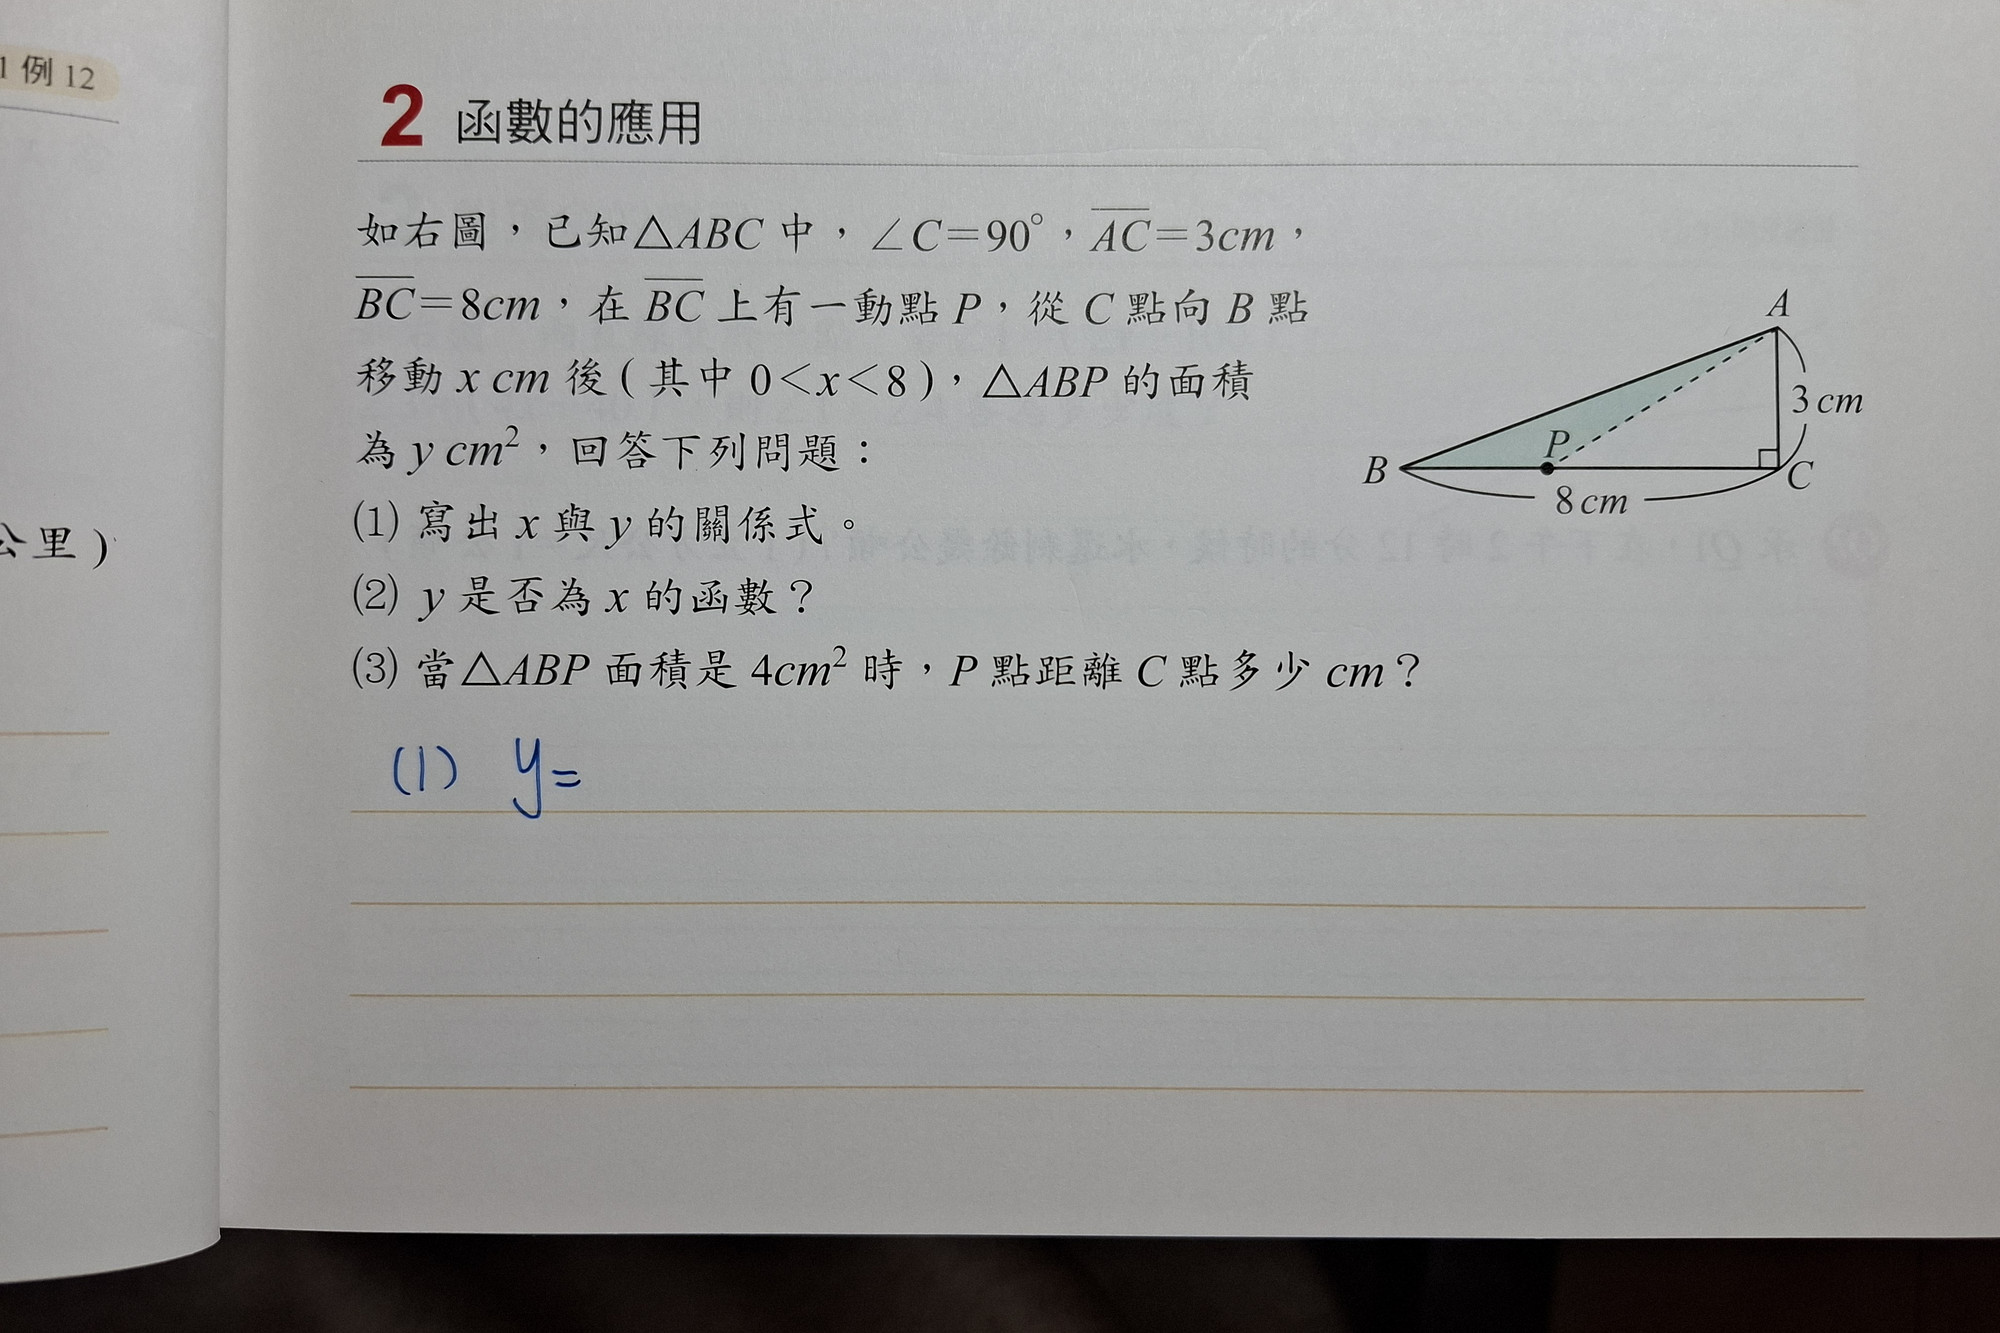 1 例 12
公里)
2 函數的應用
如右圖，已知△ABC 中，∠C=90°，AC=3cm，
BC=8cm，在 BC 上有一動點 P，從 C 點向 B 點
移動 x cm 後(其中 0<x<8)，△ABP 的面積
為 y cm²，回答下列問題：
(1) 寫出 x 與 y 的關係式。
(2) y 是否為 x 的函數？
(3) 當△ABP 面積是 4cm² 時，P 點距離 C 點多少 cm？
A
3 cm
P
B
C
8 cm
(1) y=